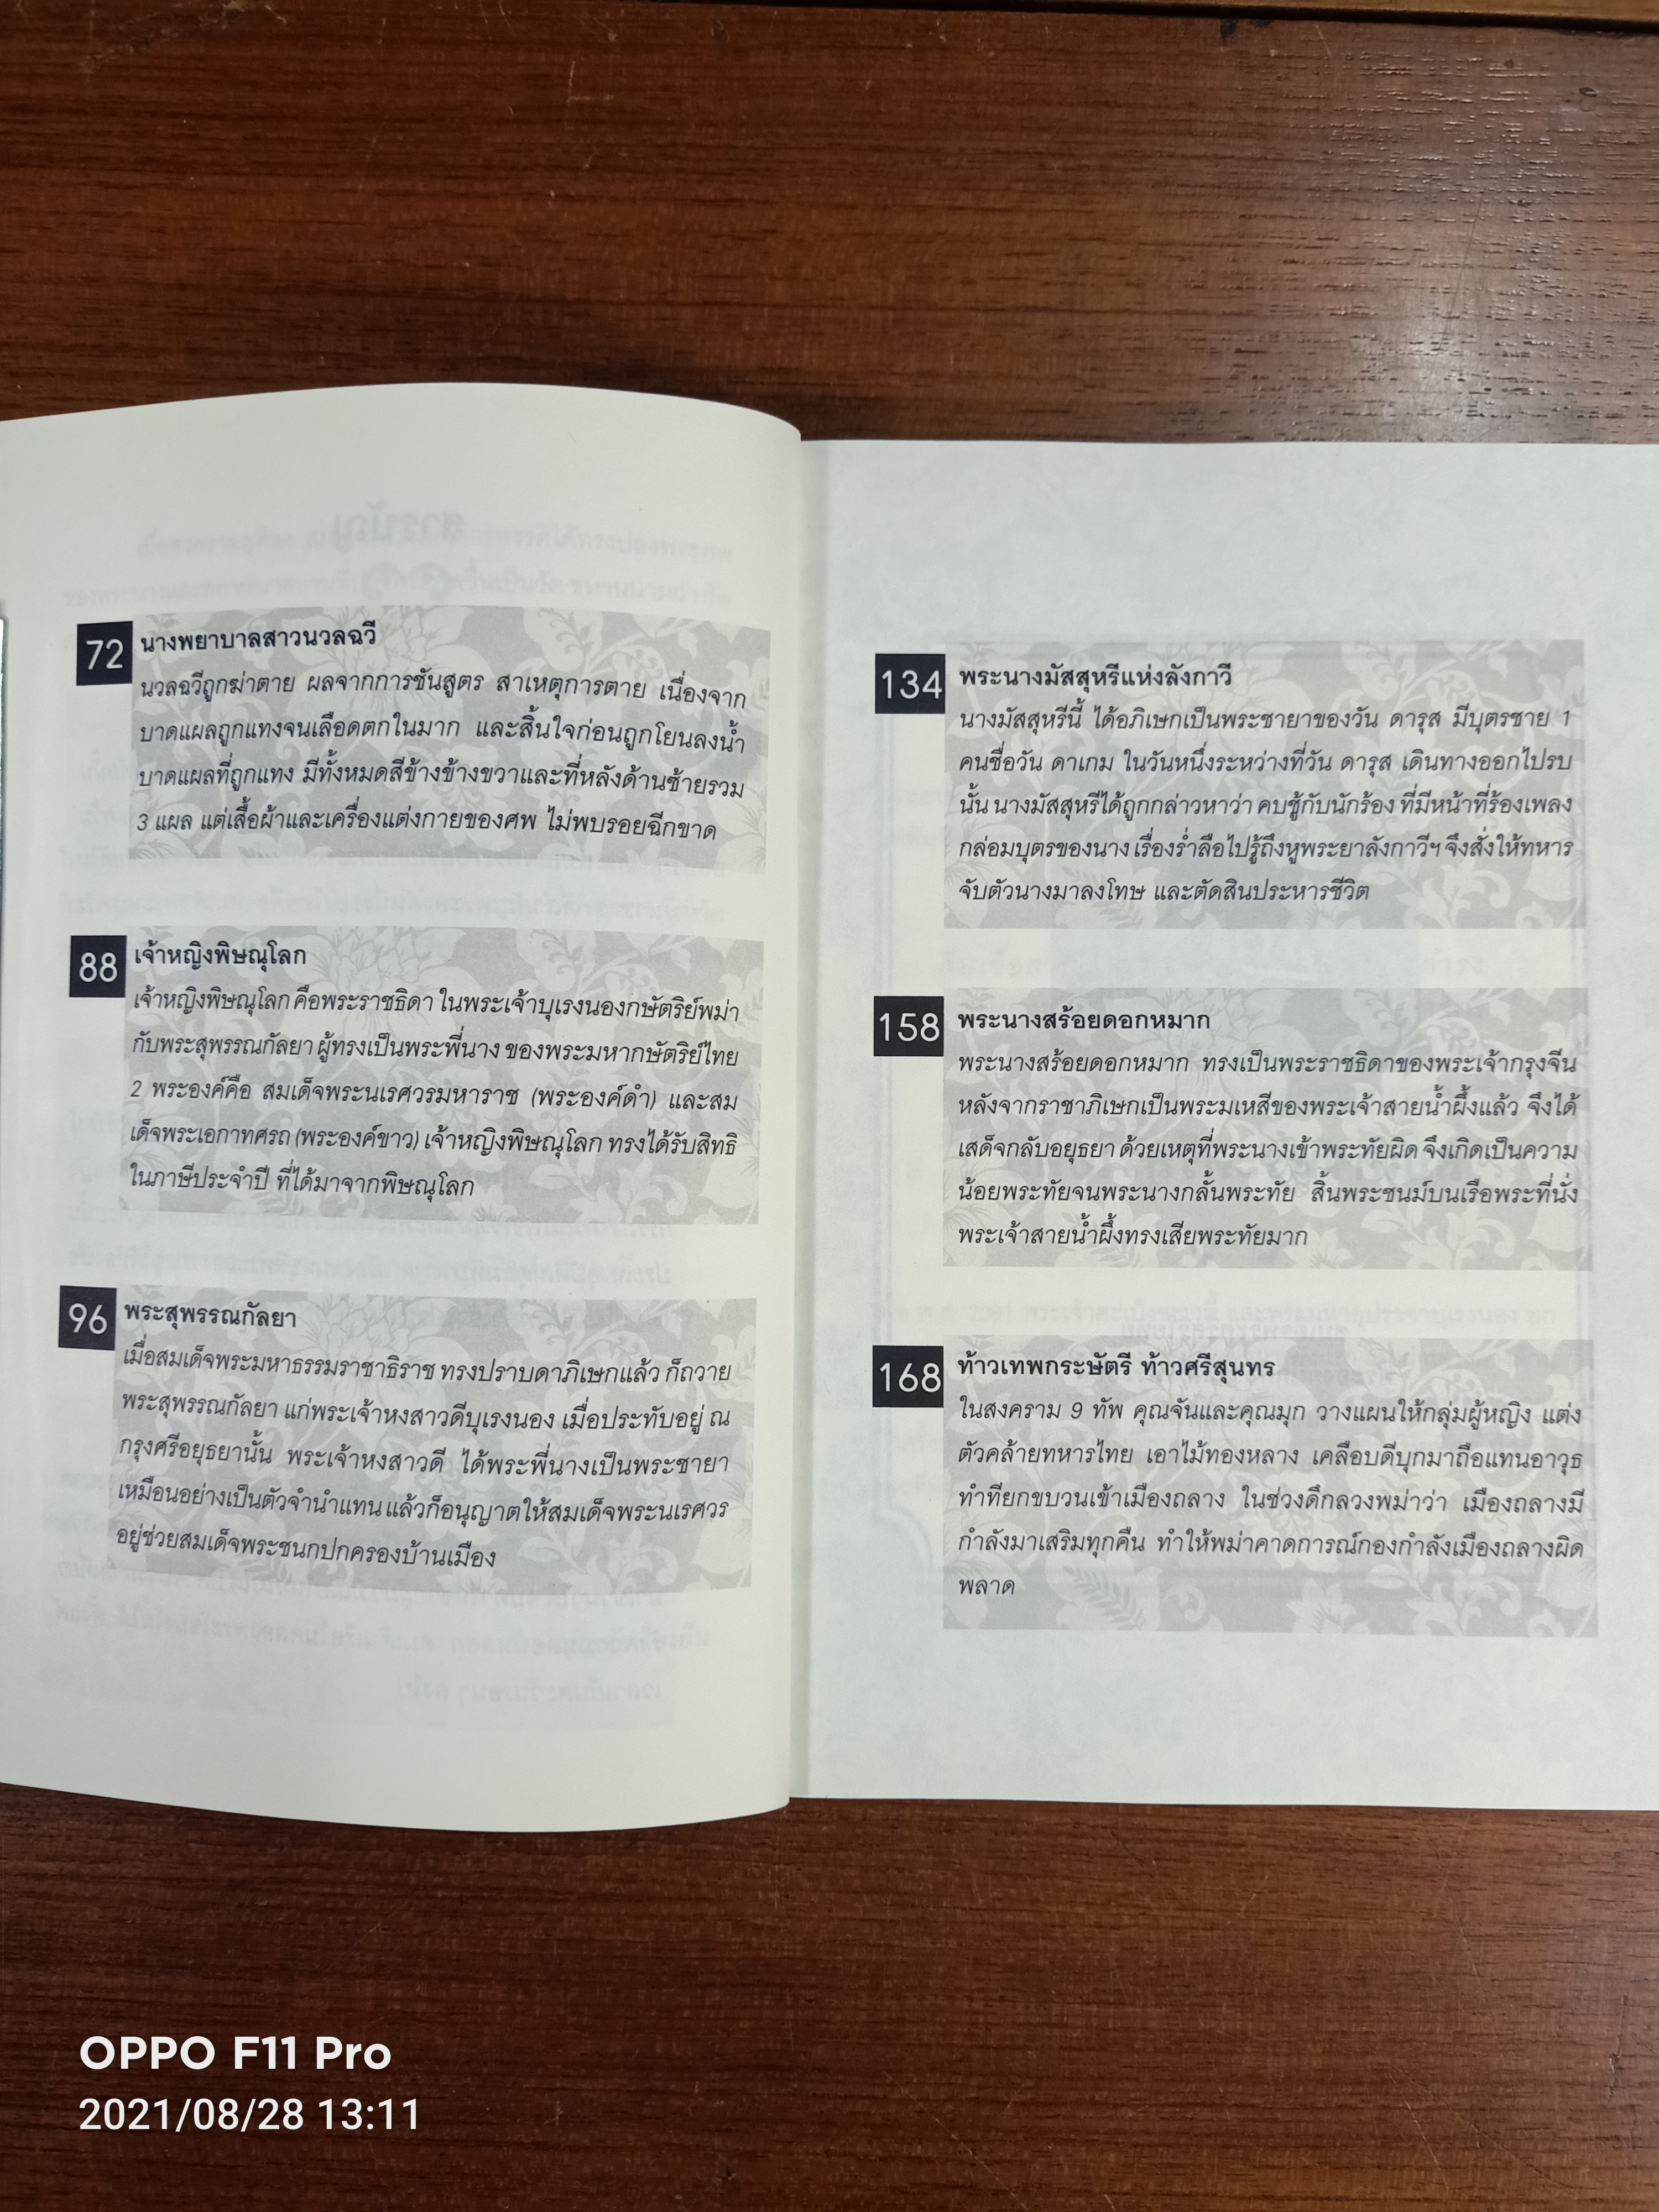 72
นางพยาบาลสาวนวลฉวี
นวลฉวีถูกฆ่าตาย ผลจากการชันสูตร สาเหตุการตาย เนื่องจาก
บาดแผลถูกแทงจนเลือดตกในมาก และสิ้นใจก่อนถูกโยนลงน้ำ
บาดแผลที่ถูกแทง มีทั้งหมดสีข้างข้างขวาและที่หลังด้านซ้ายรวม
3 แผล แต่เสื้อผ้าและเครื่องแต่งกายของศพ ไม่พบรอยฉีกขาด
88
เจ้าหญิงพิษณุโลก
เจ้าหญิงพิษณุโลก คือพระราชธิดา ในพระเจ้าบุเรงนองกษัตริย์พม่า
กับพระสุพรรณกัลยา ผู้ทรงเป็นพระพี่นาง ของพระมหากษัตริย์ไทย
2 พระองค์คือ สมเด็จพระนเรศวรมหาราช (พระองค์ดำ) และสม
เด็จพระเอกาทศรถ (พระองค์ขาว) เจ้าหญิงพิษณุโลก ทรงได้รับสิทธิ
ในภาษีประจำปี ที่ได้มาจากพิษณุโลก
96
พระสุพรรณกัลยา
เมื่อสมเด็จพระมหาธรรมราชาธิราช ทรงปราบดาภิเษกแล้ว ก็ถวาย
พระสุพรรณกัลยา แก่พระเจ้าหงสาวดีบุเรงนอง เมื่อประทับอยู่ ณ
กรุงศรีอยุธยานั้น พระเจ้าหงสาวดี ได้พระพี่นางเป็นพระชายา
เหมือนอย่างเป็นตัวจำนำแทน แล้วก็อนุญาตให้สมเด็จพระนเรศวร
อยู่ช่วยสมเด็จพระชนกปกครองบ้านเมือง
134
พระนางมัสสุหรีแห่งลังกาวี
นางมัสสุหรีนี้ ได้อภิเษกเป็นพระชายาของวัน ดารุส มีบุตรชาย 1
คนชื่อวัน ดาเกม ในวันหนึ่งระหว่างที่วัน ดารุส เดินทางออกไปรบ
นั้น นางมัสสุหรีได้ถูกกล่าวหาว่า คบชู้กับนักร้อง ที่มีหน้าที่ร้องเพลง
กล่อมบุตรของนาง เรื่องร่ำลือไปรู้ถึงหูพระยาลังกาวีฯ จึงสั่งให้ทหาร
จับตัวนางมาลงโทษ และตัดสินประหารชีวิต
158
พระนางสร้อยดอกหมาก
พระนางสร้อยดอกหมาก ทรงเป็นพระราชธิดาของพระเจ้ากรุงจีน
หลังจากราชาภิเษกเป็นพระมเหสีของพระเจ้าสายน้ำผึ้งแล้ว จึงได้
เสด็จกลับอยุธยา ด้วยเหตุที่พระนางเข้าพระทัยผิด จึงเกิดเป็นความ
น้อยพระทัยจนพระนางกลั้นพระทัย สิ้นพระชนม์บนเรือพระที่นั่ง
พระเจ้าสายน้ำผึ้งทรงเสียพระทัยมาก
168
ท้าวเทพกระษัตรี ท้าวศรีสุนทร
ในสงคราม 9 ทัพ คุณจันและคุณมุก วางแผนให้กลุ่มผู้หญิง แต่ง
ตัวคล้ายทหารไทย เอาไม้ทองหลาง เคลือบดีบุกมาถือแทนอาวุธ
ทำทียกขบวนเข้าเมืองถลาง ในช่วงดึกลวงพม่าว่า เมืองถลางมี
กำลังมาเสริมทุกคืน ทำให้พม่าคาดการณ์กองกำลังเมืองถลางผิด
พลาด
OPPO F11 Pro
2021/08/28 13:11